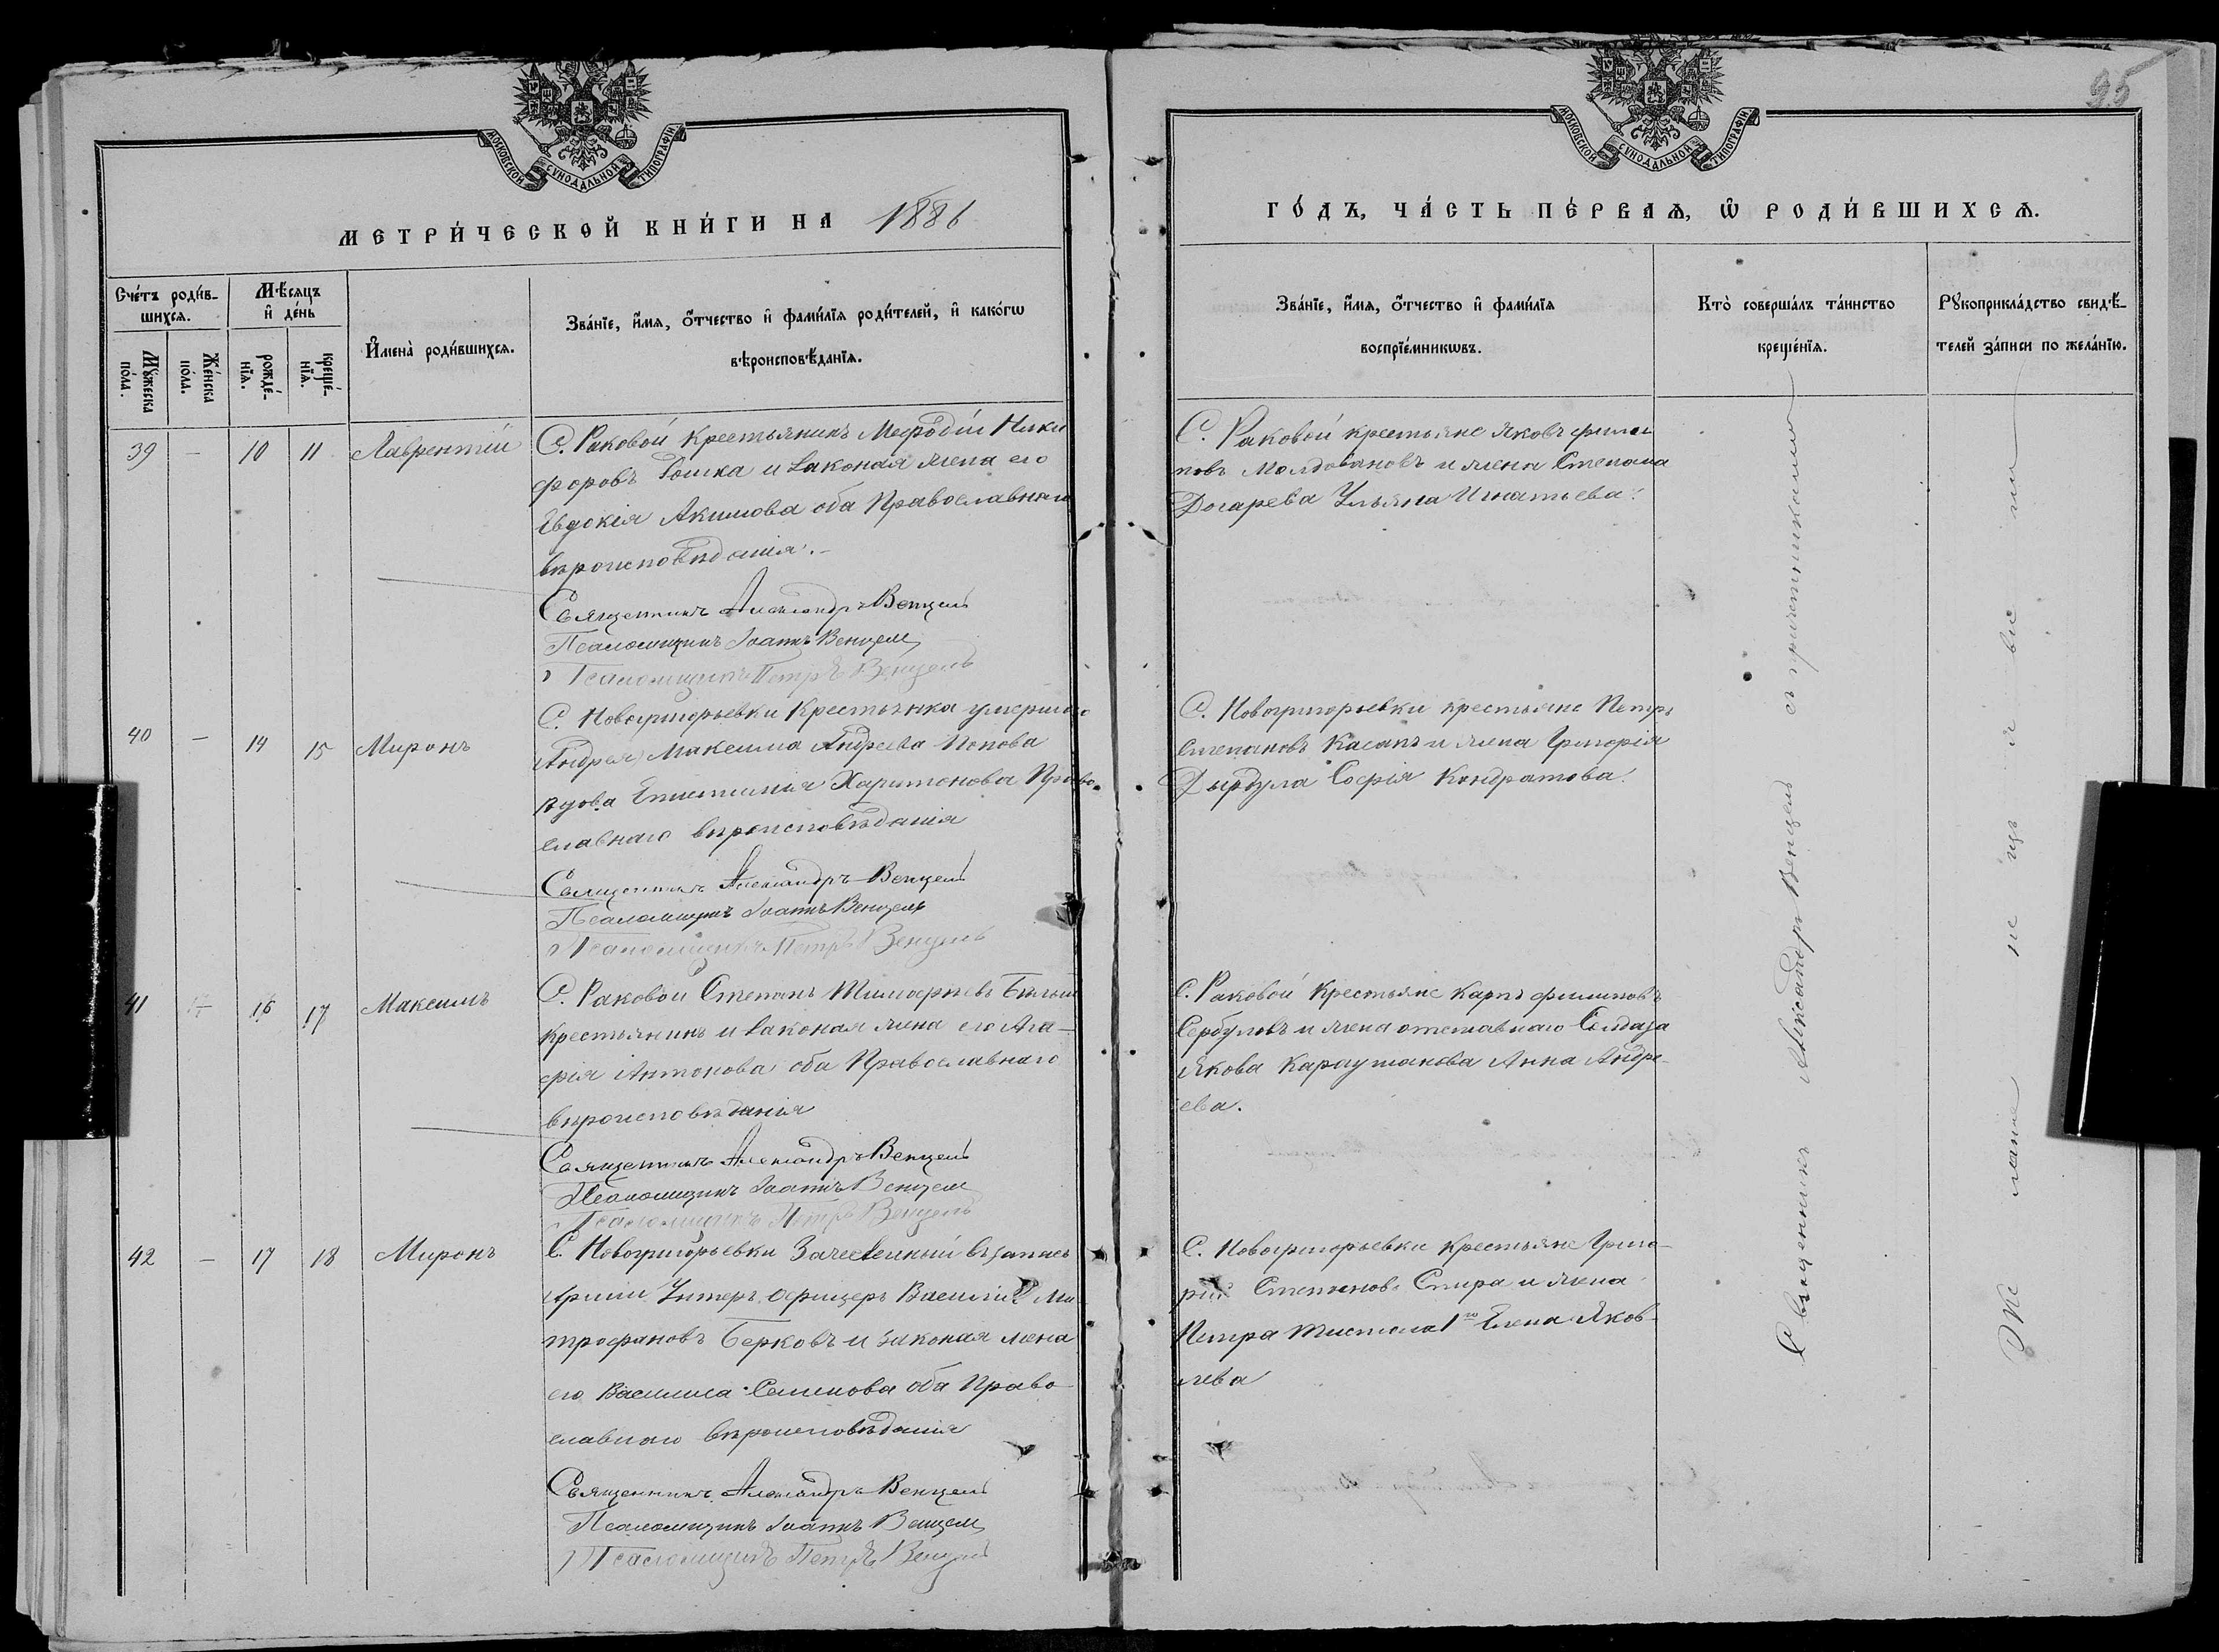 95
МОСКОВСКОЙ СѴНОДАЛЬНОЙ ТИПОГРАФІИ
МОСКОВСКОЙ СѴНОДАЛЬНОЙ ТИПОГРАФІИ
МЕТРИ́ЧЕСКОЙ КНИ́ГИ НА 1886
ГО́ДЪ, ЧА́СТЬ ПЕ́РВАѦ, Ѡ҆ РОДИ́ВШИХСѦ.
Сче́тъ роди́в-
шихсѧ.
Мꙋ́жеска
по́ла.
Же́нска
по́ла.
Мѣ́сѧцъ
и҆ де́нь
рожде́-
нїѧ.
креще́-
нїѧ.
И҆мена̀ роди́вшихсѧ.
Зва́нїе, и҆́мѧ, ѻ҆́тчество и҆ фами́лїѧ роди́телей, и҆ како́гѡ
вѣроисповѣ́данїѧ.
Зва́нїе, и҆́мѧ, ѻ҆́тчество и҆ фами́лїѧ
воспрїе́мникѡвъ.
Кто̀ соверша́лъ та́инство
креще́нїѧ.
Рꙋкоприкла́дство свидѣ́-
телей за́писи по жела́нїю.
39 — 10 11 Лаврентій
С. Раковой крестьянинъ Мефодій Ники
форовъ и законая жена его
Евдокія Акимова оба Православнаго
вѣроисповѣданія.
Священникъ Александръ Венцель
Псаломщикъ Іоаннъ Венцель
Псаломщикъ Петръ Венцель
С. Раковой крестьяне Яковъ Филип
повъ Молдовановъ и жена Степана
Догарева Ульяна Игнатьева.
40 — 14 15 Миронъ
С. Новогригорьевки Крестьянка умершаго
Андрея Максима Андреева Попова
вдова Харитонова Право
славнаго вѣроисповѣданія
Священникъ Александръ Венцель
Псаломщикъ Іоаннъ Венцель
Псаломщикъ Петръ Венцель
С. Новогригорьевки крестьяне Петръ
Степановъ Касапъ и жена Григорія
Дырдула Софія Кондратова.
41 — 16 17 Максимъ
С. Раковой Степанъ Тимофѣевъ
крестьянинъ и законая жена его Ага-
фія Антонова оба Православнаго
вѣроисповѣданія
Священникъ Александръ Венцель
Псаломщикъ Іоаннъ Венцель
Псаломщикъ Петръ Венцель
С. Раковой Крестьяне Карпъ Филиповъ
Сербуловъ и жена отставнаго Солдата
Якова Анна Андре-
ева.
42 — 17 18 Миронъ
С. Новогригорьевки Зачесленный въ запасъ
Арміи Унтеръ Офицеръ Василій Ми
трофановъ Берковъ и законая жена
его Василиса Семенова оба Право
славнаго вѣроисповѣданія
Священникъ Александръ Венцель
Псаломщикъ Іоаннъ Венцель
Псаломщикъ Петръ Венцель
С. Новогригорьевки Крестьяне Григо-
рій Степановъ Спира и жена
Петра 1го Елена Яков-
лева
Священникъ Александръ Венцель съ причетниками